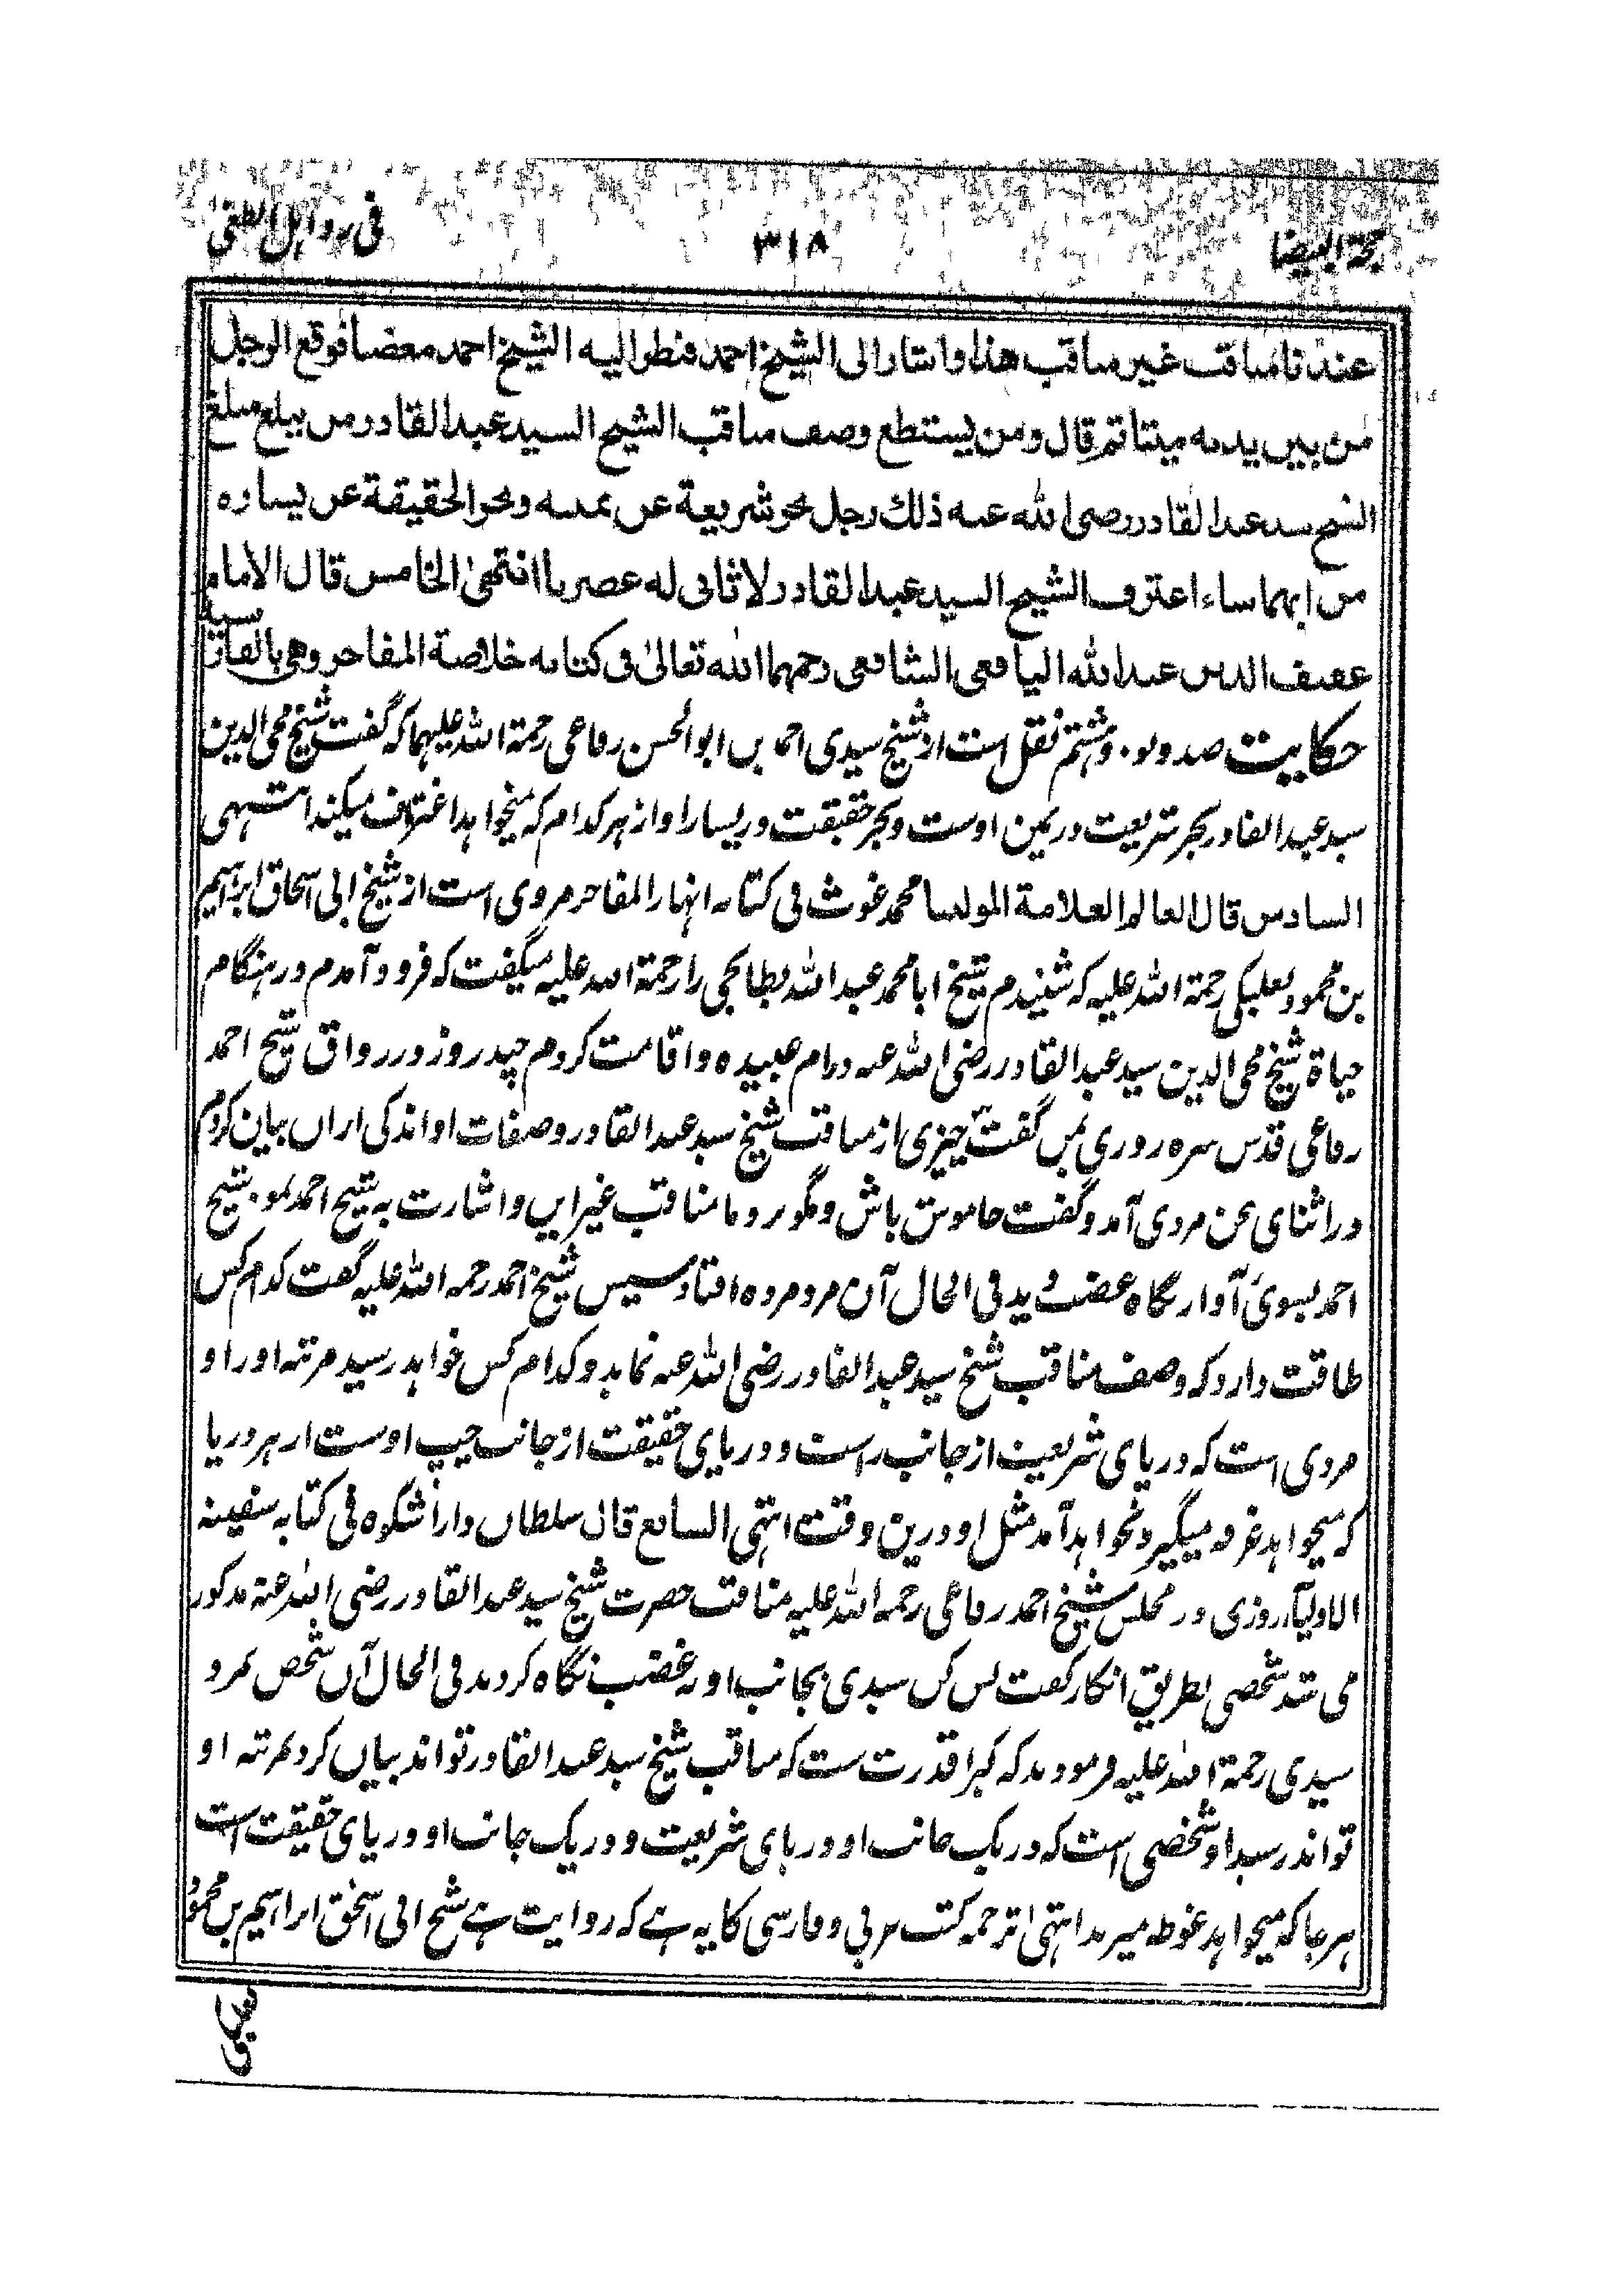 حجة البيضا ۳۱۸ فی رد اہل الطغی
عندنا مناقب غير مناقب هذا واشار الى الشيخ احمد فنظر اليه الشيخ احمد مغضبا فوقع الرجل
من بين يديه ميتا ثم قال ومن يستطع وصف مناقب الشيخ السيد عبد القادر من يبلغ مبلغ
الشيخ سيد عبد القادر رضی الله عنه ذلك رجل بحر شريعة عن يمينه وبحر الحقيقة عن يساره
من ايهما شاء اعترف الشيخ السيد عبد القادر لا ثانى له عصرنا انتهىٰ الخامس قال الامام
عفيف الدين عبد الله اليافعى الشافعى رحمهما الله تعالىٰ فى كتابه خلاصة المفاخر وهى بالفارسية
حکایت صد و نو و هشتم نقل است از شیخ سیدی احمد بن ابو الحسن رفاعی رحمة الله علیهما که گفت شیخ محی الدین
سید عبد القادر بحر شریعت در یمین اوست و بحر حقیقت در یسار او از هر کدام که میخواهد اغتراف میکند انتهی
السادس قال العالم العلامة المولينا محمد غوث فی کتابه انهار المفاخر مروی است از شیخ ابی اسحاق ابراہیم
بن محمود بعلبکی رحمة الله علیه که شنیدم شیخ ابا محمد عبد الله بطایحی را رحمة الله علیه میگفت که فرود آمدم در ہنگام
حیاة شیخ محی الدین سید عبد القادر رضی الله عنه در ام عبیده و اقامت کردم چند روز در رواق شیخ احمد
رفاعی قدس سره روزی بمن گفت چیزی از مناقب شیخ سید عبد القادر و صفات او اندکی ازان بیان کردم
در اثنای سخن مردی آمد و گفت خاموش باش و مگو نزد ما مناقب غیر این و اشارت به شیخ احمد نمود شیخ
احمد بسوی آواز نگاه غضب دید فی الحال آن مرد مرده افتاد سپس شیخ احمد رحمه الله علیه گفت کدام کس
طاقت دارد که وصف مناقب شیخ سید عبد القادر رضی الله عنه نماید و کدام کس خواهد رسید مرتبه او را و
مردی است که دریای شریعت از جانب راست و دریای حقیقت از جانب چپ اوست از هر دریا
که میخواهد غرفه میگیرد نخواهد آمد مثل او درین وقت انتهی السابع قال سلطان دارا شکوه فی کتابه سفینة
الاولیآء روزی در مجلس شیخ احمد رفاعی رحمه الله علیه مناقب حضرت شیخ سید عبد القادر رضی الله عنه مذکور
می شد شخصی بطریق انکار گفت بس کن سیدی بجانب او به غضب نگاه کردند فی الحال آن شخص بمرد
سیدی رحمة الله علیه فرمودند که کرا قدرت ست که مناقب شیخ سید عبد القادر تواند بیان کرد بمرتبه او
تواند رسید او شخصی است که در یک جانب او دریای شریعت و در یک جانب او دریای حقیقت است
هر جا که میخواهد غوطه میزند انتهیٰ ترجمہ کتب عربی و فارسی کا یہ ہے کہ روایت ہے شیخ ابی اسحٰق ابراہیم بن محمود
بعلبکی